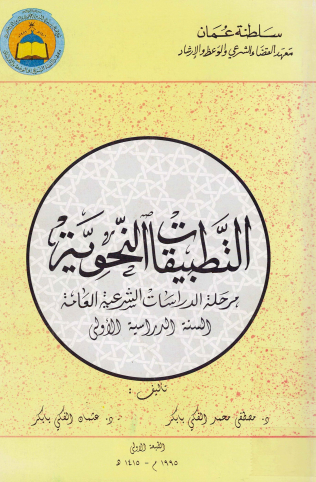 سلطنة عمان
معهد القضاء الشرعي والوعظ والإرشاد
التطبيقات النحوية
مرحلة الدراسات الشرعية العامة
السنة الدراسية الأولى
تأليف :
د. مصطفى محمد الفكي بابكر
د. عثمان الفكي بابكر
الطبعة الأولى
١٩٩٥ م - ١٤١٥ هـ